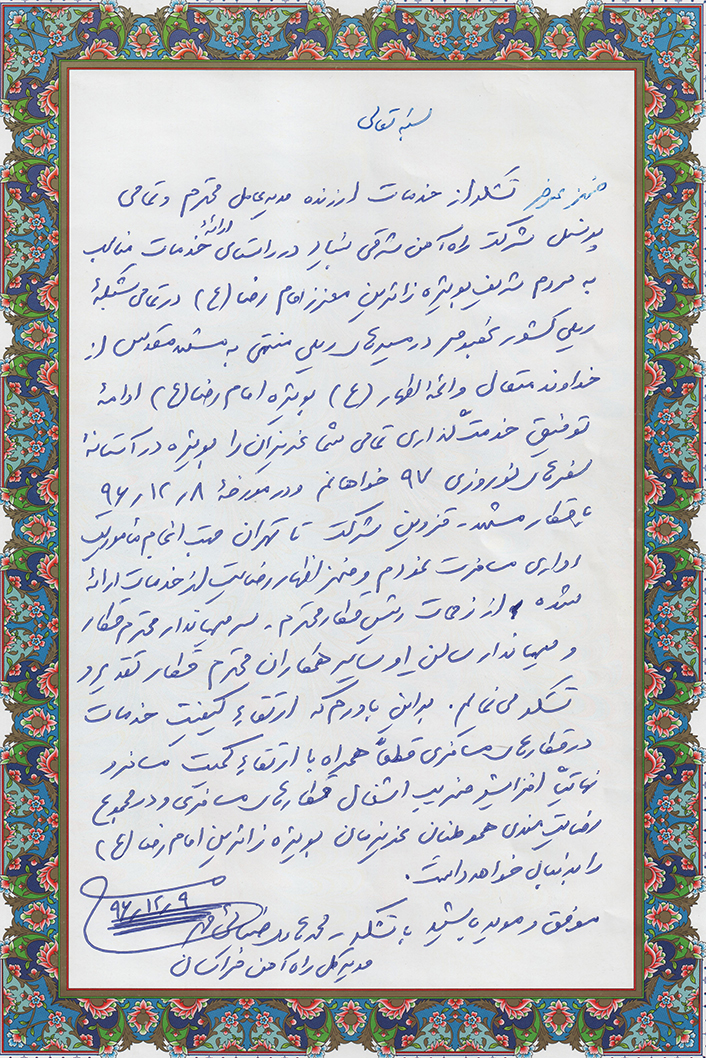 بسمه تعالی
ضمن عرض تشکر از خدمات ارزنده مدیرعامل محترم و تمامی
پرسنل شرکت راه آهن شرقی بنیاد در راستای ارائهٔ خدمات مناسب
به مردم شریف بویژه زائرین معزز امام رضا (ع) در تمامی شبکهٔ
ریلی کشور بخصوص در مسیرهای ریلی منتهی به مشهد مقدس از
خداوند متعال و ائمه اطهار (ع) بویژه امام رضا (ع) ادامهٔ
توفیق خدمت‌گذاری تمامی شما عزیزان را بویژه در آستانهٔ
سفرهای نوروزی ۹۷ خواهانم و در مورخهٔ ۹۶/۱۲/۸
با قطار مشهد - قزوین شرکت تا تهران جهت انجام مأموریت
اداری مسافرت نمودم و ضمن اظهار رضایت از خدمات ارائه
شده از زحمات رئیس قطار محترم - سرمهماندار محترم قطار
و مهماندار سالن او سایر همکاران محترم قطار تقدیر و
تشکر می نمایم. براین باورم که ارتقاء کیفیت خدمات
در قطارهای مسافری قطعاً همراه با ارتقاء کمیت مسافر و
نهایتاً افزایش ضریب اشغال قطارهای مسافری و در مجموع
رضایت مندی هموطنان عزیزمان بویژه زائرین امام رضا (ع)
را بدنبال خواهد داشت.
موفق و موید باشید با تشکر - محمد هادی ضیائی مهر
۹۶/۱۲/۹
مدیرکل راه آهن خراسان